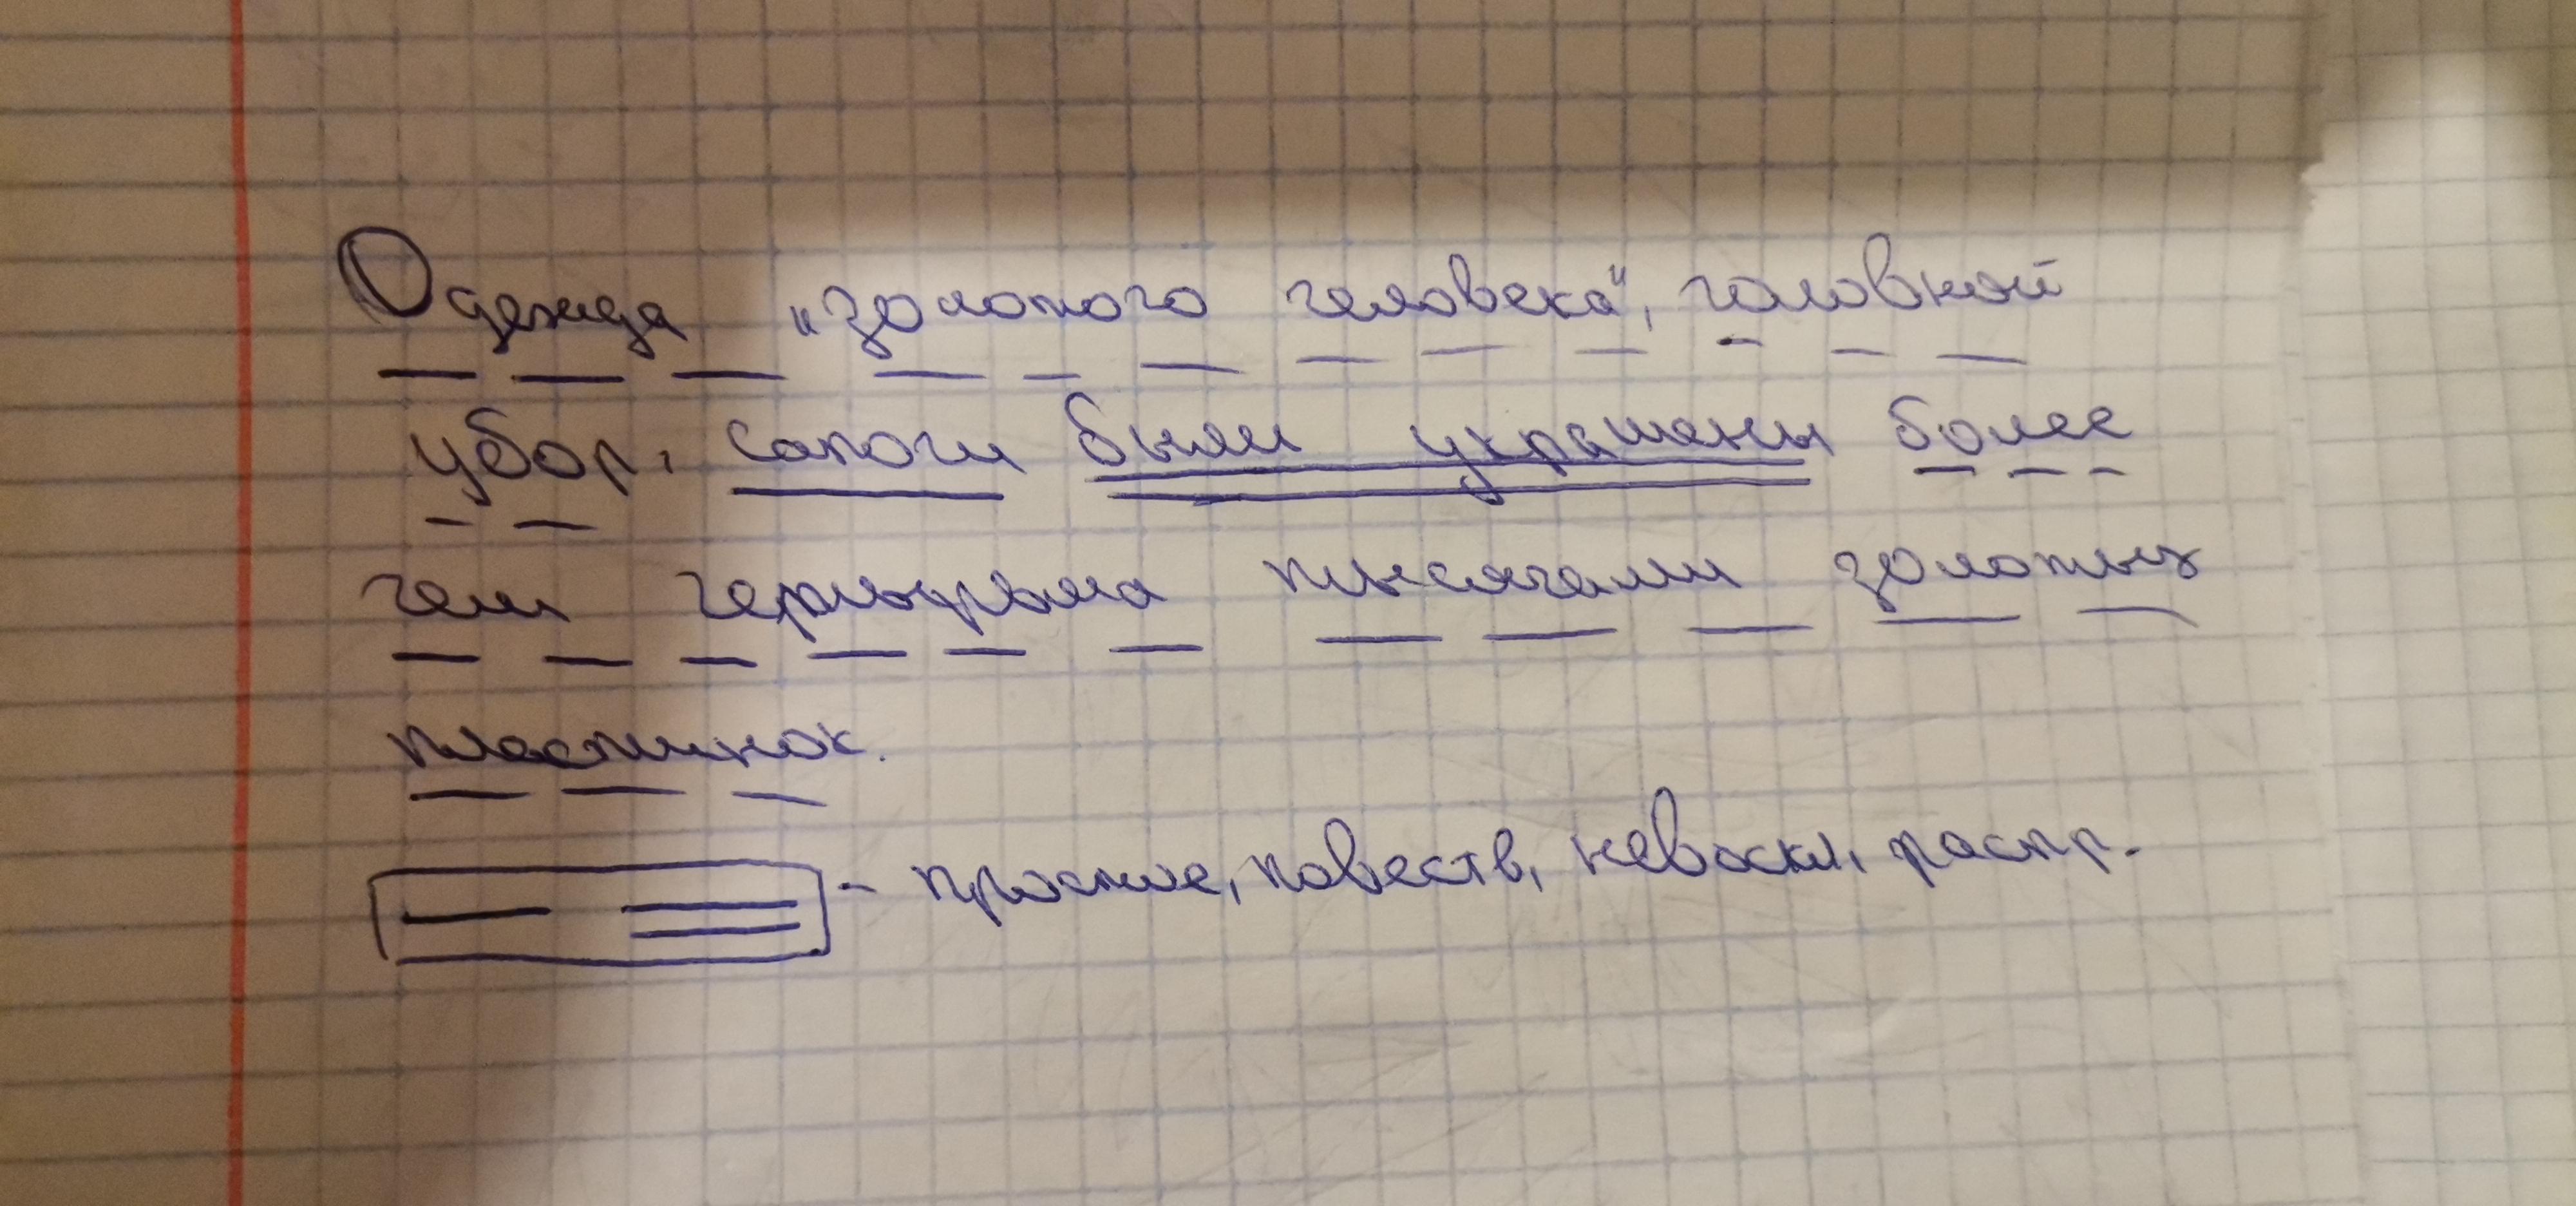 Одежда „золотого человека", головной
убор, сапоги были украшены более
чем четырьмя тысячами золотых
пластинок.
- простое, повеств, невоскл, распр.